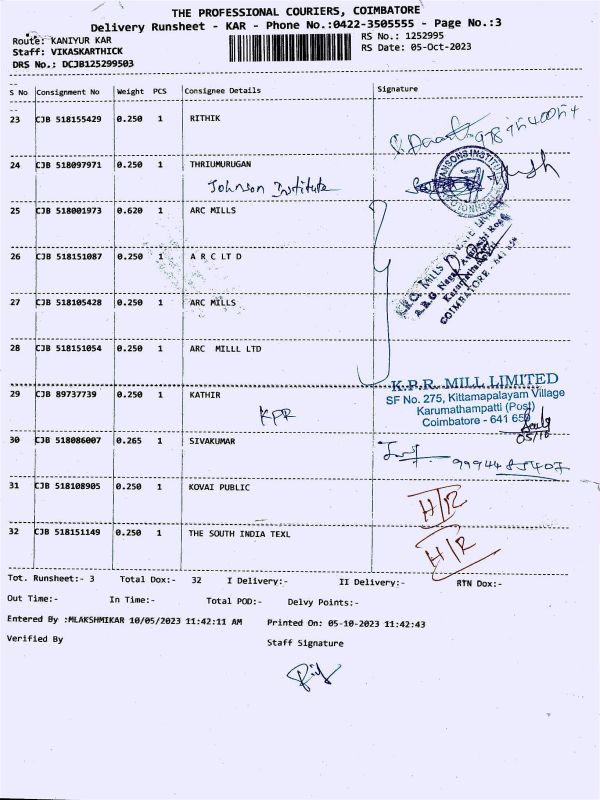 THE PROFESSIONAL COURIERS, COIMBATORE
Delivery Runsheet - KAR - Phone No.:0422-3505555 - Page No.:3
Route: KANIYUR KAR
Staff: VIKASKARTHICK
DRS No.: DCJB125299503
RS No.: 1252995
RS Date: 05-Oct-2023
S No Consignment No Weight PCS Consignee Details Signature
23 CJB 518155429 0.250 1 RITHIK
24 CJB 518097971 0.250 1 THRIUMURUGAN
Johnson Institute
25 CJB 518001973 0.620 1 ARC MILLS
26 CJB 518151087 0.250 1 A R C LT D
27 CJB 518105428 0.250 1 ARC MILLS
COIMBATORE - 641
28 CJB 518151054 0.250 1 ARC MILLL LTD
29 CJB 89737739 0.250 1 KATHIR
KPR
K.P.R. MILL LIMITED
SF No. 275, Kittamapalayam Village
Karumathampatti (Post)
Coimbatore - 641 659
05/10
30 CJB 518086007 0.265 1 SIVAKUMAR
9994485407
31 CJB 518108905 0.250 1 KOVAI PUBLIC
H/R
32 CJB 518151149 0.250 1 THE SOUTH INDIA TEXL
H/R
Tot. Runsheet:- 3 Total Dox:- 32 I Delivery:- II Delivery:- RTN Dox:-
Out Time:- In Time:- Total POD:- Delvy Points:-
Entered By :MLAKSHMIKAR 10/05/2023 11:42:11 AM Printed On: 05-10-2023 11:42:43
Verified By Staff Signature